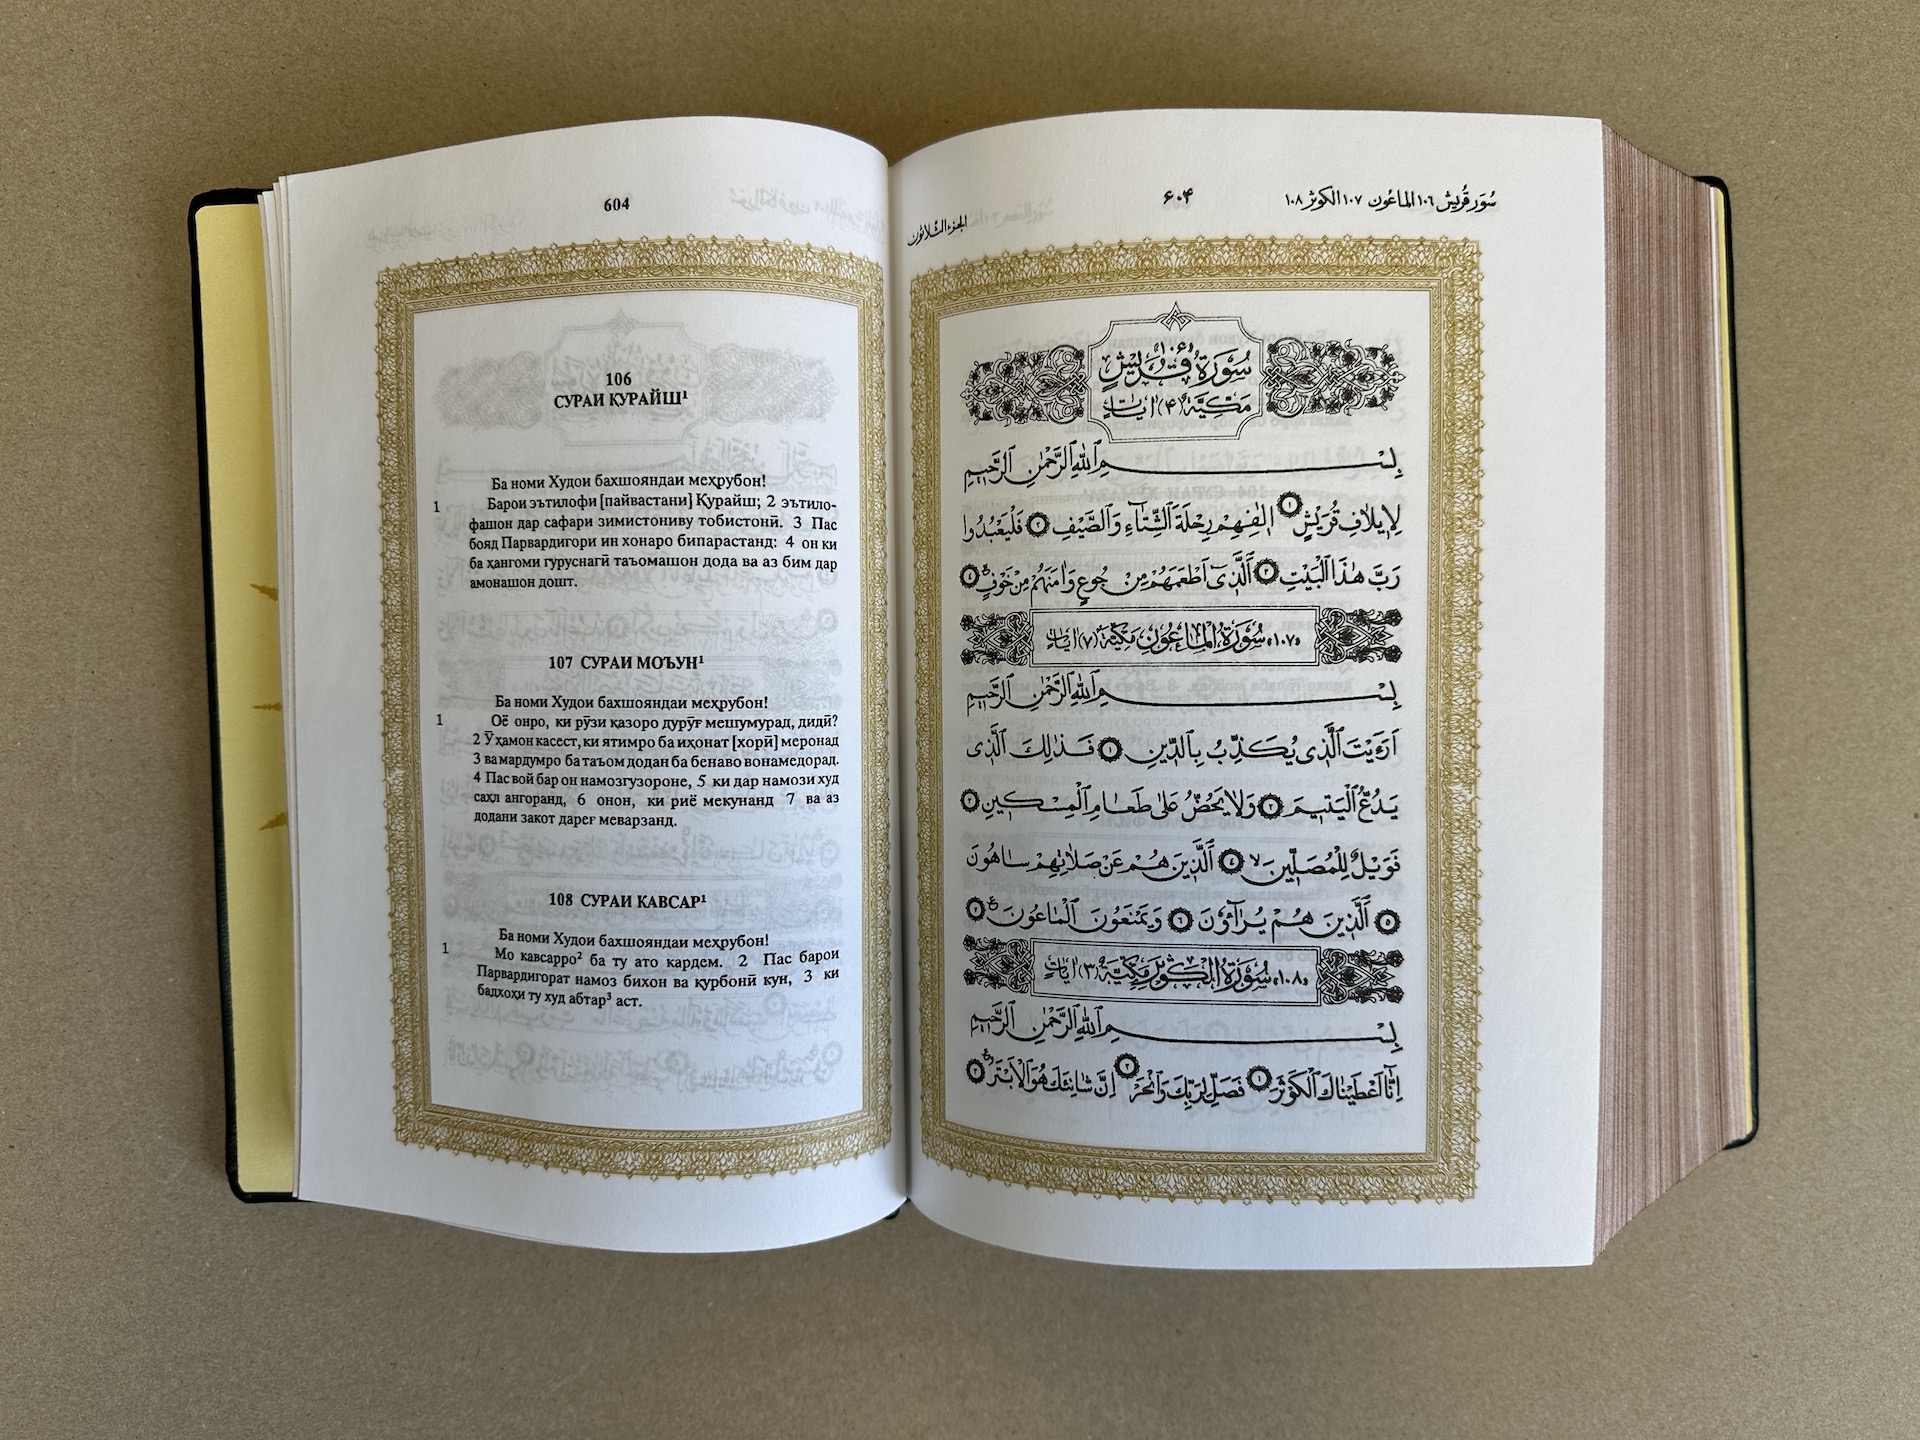 604
106
СУРАИ ҚУРАЙШ¹
Ба номи Худои бахшояндаи меҳрубон!
1 Барои эътилофи [пайвастани] Қурайш; 2 эътило-
фашон дар сафари зимистониву тобистонӣ. 3 Пас
бояд Парвардигори ин хонаро бипарастанд: 4 он ки
ба ҳангоми гуруснагӣ таъомашон дода ва аз бим дар
амонашон дошт.
107 СУРАИ МОЪУН¹
Ба номи Худои бахшояндаи меҳрубон!
1 Оё онро, ки рӯзи қазоро дурӯғ мешумурад, дидӣ?
2 Ӯ ҳамон касест, ки ятимро ба иҳонат [хорӣ] меронад
3 ва мардумро ба таъом додан ба бенаво вонамедорад.
4 Пас вой бар он намозгузороне, 5 ки дар намози худ
саҳл ангоранд, 6 онон, ки риё мекунанд 7 ва аз
додани закот дареғ меварзанд.
108 СУРАИ КАВСАР¹
Ба номи Худои бахшояндаи меҳрубон!
1 Мо кавсарро² ба ту ато кардем. 2 Пас барои
Парвардигорат намоз бихон ва қурбонӣ кун, 3 ки
бадхоҳи ту худ абтар³ аст.
سُوَر قُرَيش ١٠٦ المَاعُون ١٠٧ الكوثر ١٠٨
۶۰۴
الجزء الثلاثون
۱۰۶
سُورَةُ قُرَيْشٍ
مَكِّيَّةٌ (۴) ايَاتٍ
بِسْمِ اللّٰهِ الرَّحْمٰنِ الرَّحِيمِ
لِاِيلَافِ قُرَيْشٍ ۱ اِلٰفِهِمْ رِحْلَةَ الشِّتَآءِ وَالصَّيْفِ ۲ فَلْيَعْبُدُوا
رَبَّ هٰذَا الْبَيْتِ ۳ اَلَّذِىٓ اَطْعَمَهُمْ مِنْ جُوعٍ وَاٰمَنَهُمْ مِنْ خَوْفٍ ۴
«۱۰۷» سُورَةُ الْمَاعُونَ مَكِّيَّةٌ (۷) ايَاتٍ
بِسْمِ اللّٰهِ الرَّحْمٰنِ الرَّحِيمِ
اَرَءَيْتَ الَّذِى يُكَذِّبُ بِالدِّينِ ۱ فَذٰلِكَ الَّذِى
يَدُعُّ الْيَتِيمَ ۲ وَلَا يَحُضُّ عَلٰى طَعَامِ الْمِسْكِينِ ۳
فَوَيْلٌ لِلْمُصَلِّينَ ۴ اَلَّذِينَ هُمْ عَنْ صَلَاتِهِمْ سَاهُونَ
۵ اَلَّذِينَ هُمْ يُرَآؤُونَ ۶ وَيَمْنَعُونَ الْمَاعُونَ ۷
«۱۰۸» سُورَةُ الْكَوْثَرِ مَكِّيَّةٌ (۳) ايَاتٍ
بِسْمِ اللّٰهِ الرَّحْمٰنِ الرَّحِيمِ
اِنَّآ اَعْطَيْنَاكَ الْكَوْثَرَ ۱ فَصَلِّ لِرَبِّكَ وَانْحَرْ ۲ اِنَّ شَانِئَكَ هُوَ الْاَبْتَرُ ۳